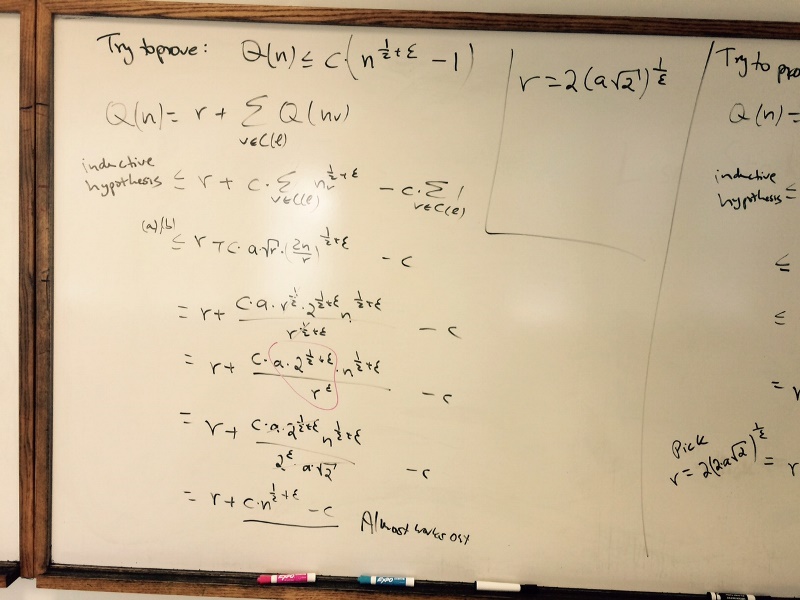 Try to prove: Q(n) ≤ c·(n^{½+ε} − 1)
Q(n) = r + ∑_{v∈C(ℓ)} Q(n_v)
inductive hypothesis ≤ r + c·∑_{v∈C(ℓ)} n_v^{½+ε} − c·∑_{v∈C(ℓ)} 1
(a)/(b) ≤ r + c·a·√r·(2n/r)^{½+ε} − c
= r + (c·a·r^{½}·2^{½+ε} n^{½+ε})/(r^{½+ε}) − c
= r + (c·a·2^{½+ε})/(r^ε)·n^{½+ε} − c
= r + (c·a·2^{½+ε} n^{½+ε})/(2^ε·a·√2) − c
= r + c·n^{½+ε} − c Almost works
r = 2(a√2)^{1/ε}
Try to pro
Q(n) =
inductive hypothesis ≤
≤
≤
= r
Pick
r = 2(2a√2)^{1/ε} = r